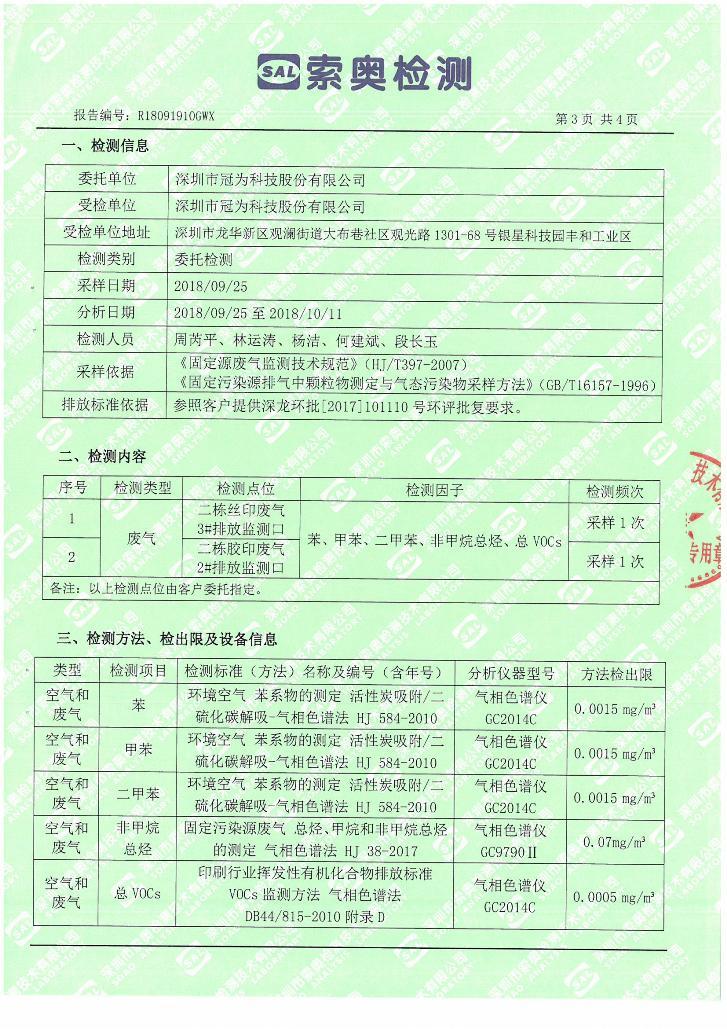 SAL 索奥检测
报告编号: R18091910GWX 第3页 共4页
一、检测信息
委托单位 深圳市冠为科技股份有限公司
受检单位 深圳市冠为科技股份有限公司
受检单位地址 深圳市龙华新区观澜街道大布巷社区观光路1301-68号银星科技园丰和工业区
检测类别 委托检测
采样日期 2018/09/25
分析日期 2018/09/25至2018/10/11
检测人员 周芮平、林运涛、杨洁、何建斌、段长玉
采样依据 《固定源废气监测技术规范》(HJ/T397-2007)
《固定污染源排气中颗粒物测定与气态污染物采样方法》(GB/T16157-1996)
排放标准依据 参照客户提供深龙环批[2017]101110号环评批复要求。
二、检测内容
序号 检测类型 检测点位 检测因子 检测频次
1 废气 二栋丝印废气
3#排放监测口 苯、甲苯、二甲苯、非甲烷总烃、总VOCs 采样1次
2 二栋胶印废气
2#排放监测口 采样1次
备注: 以上检测点位由客户委托指定。
技术
专用章
三、检测方法、检出限及设备信息
类型 检测项目 检测标准（方法）名称及编号（含年号） 分析仪器型号 方法检出限
空气和
废气 苯 环境空气 苯系物的测定 活性炭吸附/二
硫化碳解吸-气相色谱法 HJ 584-2010 气相色谱仪
GC2014C 0.0015 mg/m³
空气和
废气 甲苯 环境空气 苯系物的测定 活性炭吸附/二
硫化碳解吸-气相色谱法 HJ 584-2010 气相色谱仪
GC2014C 0.0015 mg/m³
空气和
废气 二甲苯 环境空气 苯系物的测定 活性炭吸附/二
硫化碳解吸-气相色谱法 HJ 584-2010 气相色谱仪
GC2014C 0.0015 mg/m³
空气和
废气 非甲烷
总烃 固定污染源废气 总烃、甲烷和非甲烷总烃
的测定 气相色谱法 HJ 38-2017 气相色谱仪
GC9790Ⅱ 0.07mg/m³
空气和
废气 总VOCs 印刷行业挥发性有机化合物排放标准
VOCs监测方法 气相色谱法
DB44/815-2010附录D 气相色谱仪
GC2014C 0.0005 mg/m³